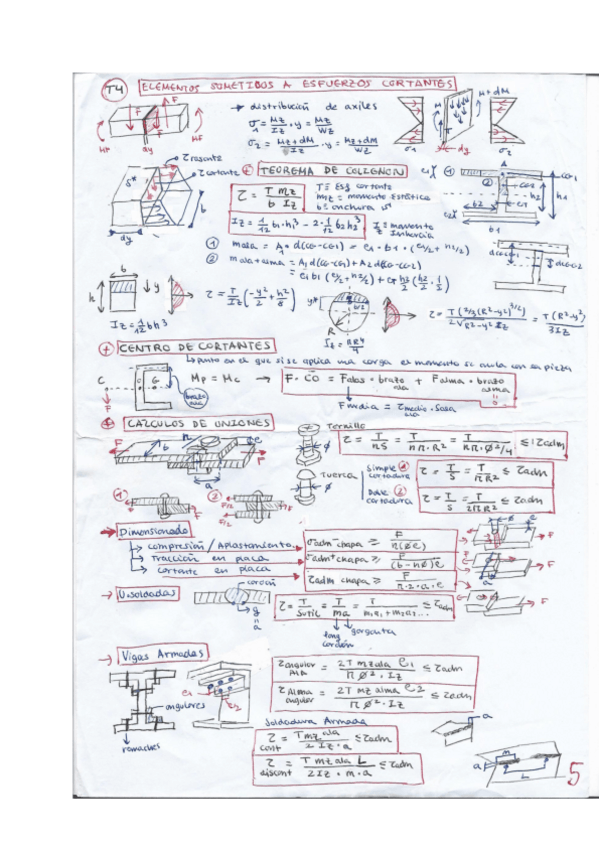 T4 ELEMENTOS SOMETIDOS A ESFUERZOS CORTANTES
→ distribución de axiles
σ1 = Mz/Iz · y = Mz/Wz
σ2 = Mz+dM/Iz · y = Mz+dM/Wz
F
F
Mf
Mf
dy
M
M+dM
σ1
dy
σ2
τ rasante
τ cortante
S*
b
dy
TEOREMA DE COLIGNON
τ = T mz / b Iz
T = Esf cortante
mz = momento estático
b = anchura
Iz = 1/12 b1·h1³ - 2·1/12 b2h2³
Iz = momento Inercia
A
h2
h1
b1
① mala = A1 · d(CG-CG1) = e1 · b1 · (e1/2 + h2/2)
② mala+alma = A1 d(CG-CG1) + A2 d(CG-CG2)
b
h
y
Iz = 1/12 bh³
τ = T/Iz (-y²/2 + h²/8)
y*
R
Iz = πR⁴/4
τ = T(2/3(R²-y²)^3/2) / 2√R²-y² Iz = T(R²-y²)/3Iz
CENTRO DE CORTANTES
↳ punto en el que si se aplica una carga el momento se anula con la pieza
C
G
F
brazo ala
Mp = Mc → F · CO = Falas · brazo ala + Falma · brazo alma
= 0
F media ala = τ media · Sala
CALCULOS DE UNIONES
F
b
n
e
F
a
Tornillo
φ
Tuerca
φ
τ = T/nS = T/nπ·R² = T/nπ·φ²/4 ≤ τadm
Simple ① cortadura
τ = T/S = T/πR² ≤ τadm
Doble ② cortadura
τ = T/S = T/2πR² ≤ τadm
①
②
F/2
F/2
→ Dimensionado
→ compresión/Aplastamiento
→ Tracción en placa
→ cortante en placa
σadm chapa ≥ F / n(φe)
σadm+ chapa ≥ F / (b-nφ)e
τadm chapa ≥ F / n·2·a·e
F
F
F
→ U.soldadas
cordón
τ = T/Sutil = T/ma = T / m1a1+m2a2... ≤ τadm
long cordón
garganta
→ Vigas Armadas
angulares
remaches
e1
e2
τ angular ala = 2T mzala e1 / πφ² · Iz ≤ τadm
τ Alma angular = 2T mz alma e2 / πφ² · Iz ≤ τadm
Soldadura Armada
τ cont = Tmzala / 2Iz · a ≤ τadm
τ discont = T mzala L / 2Iz · m · a ≤ τadm
a
a
m
L
5